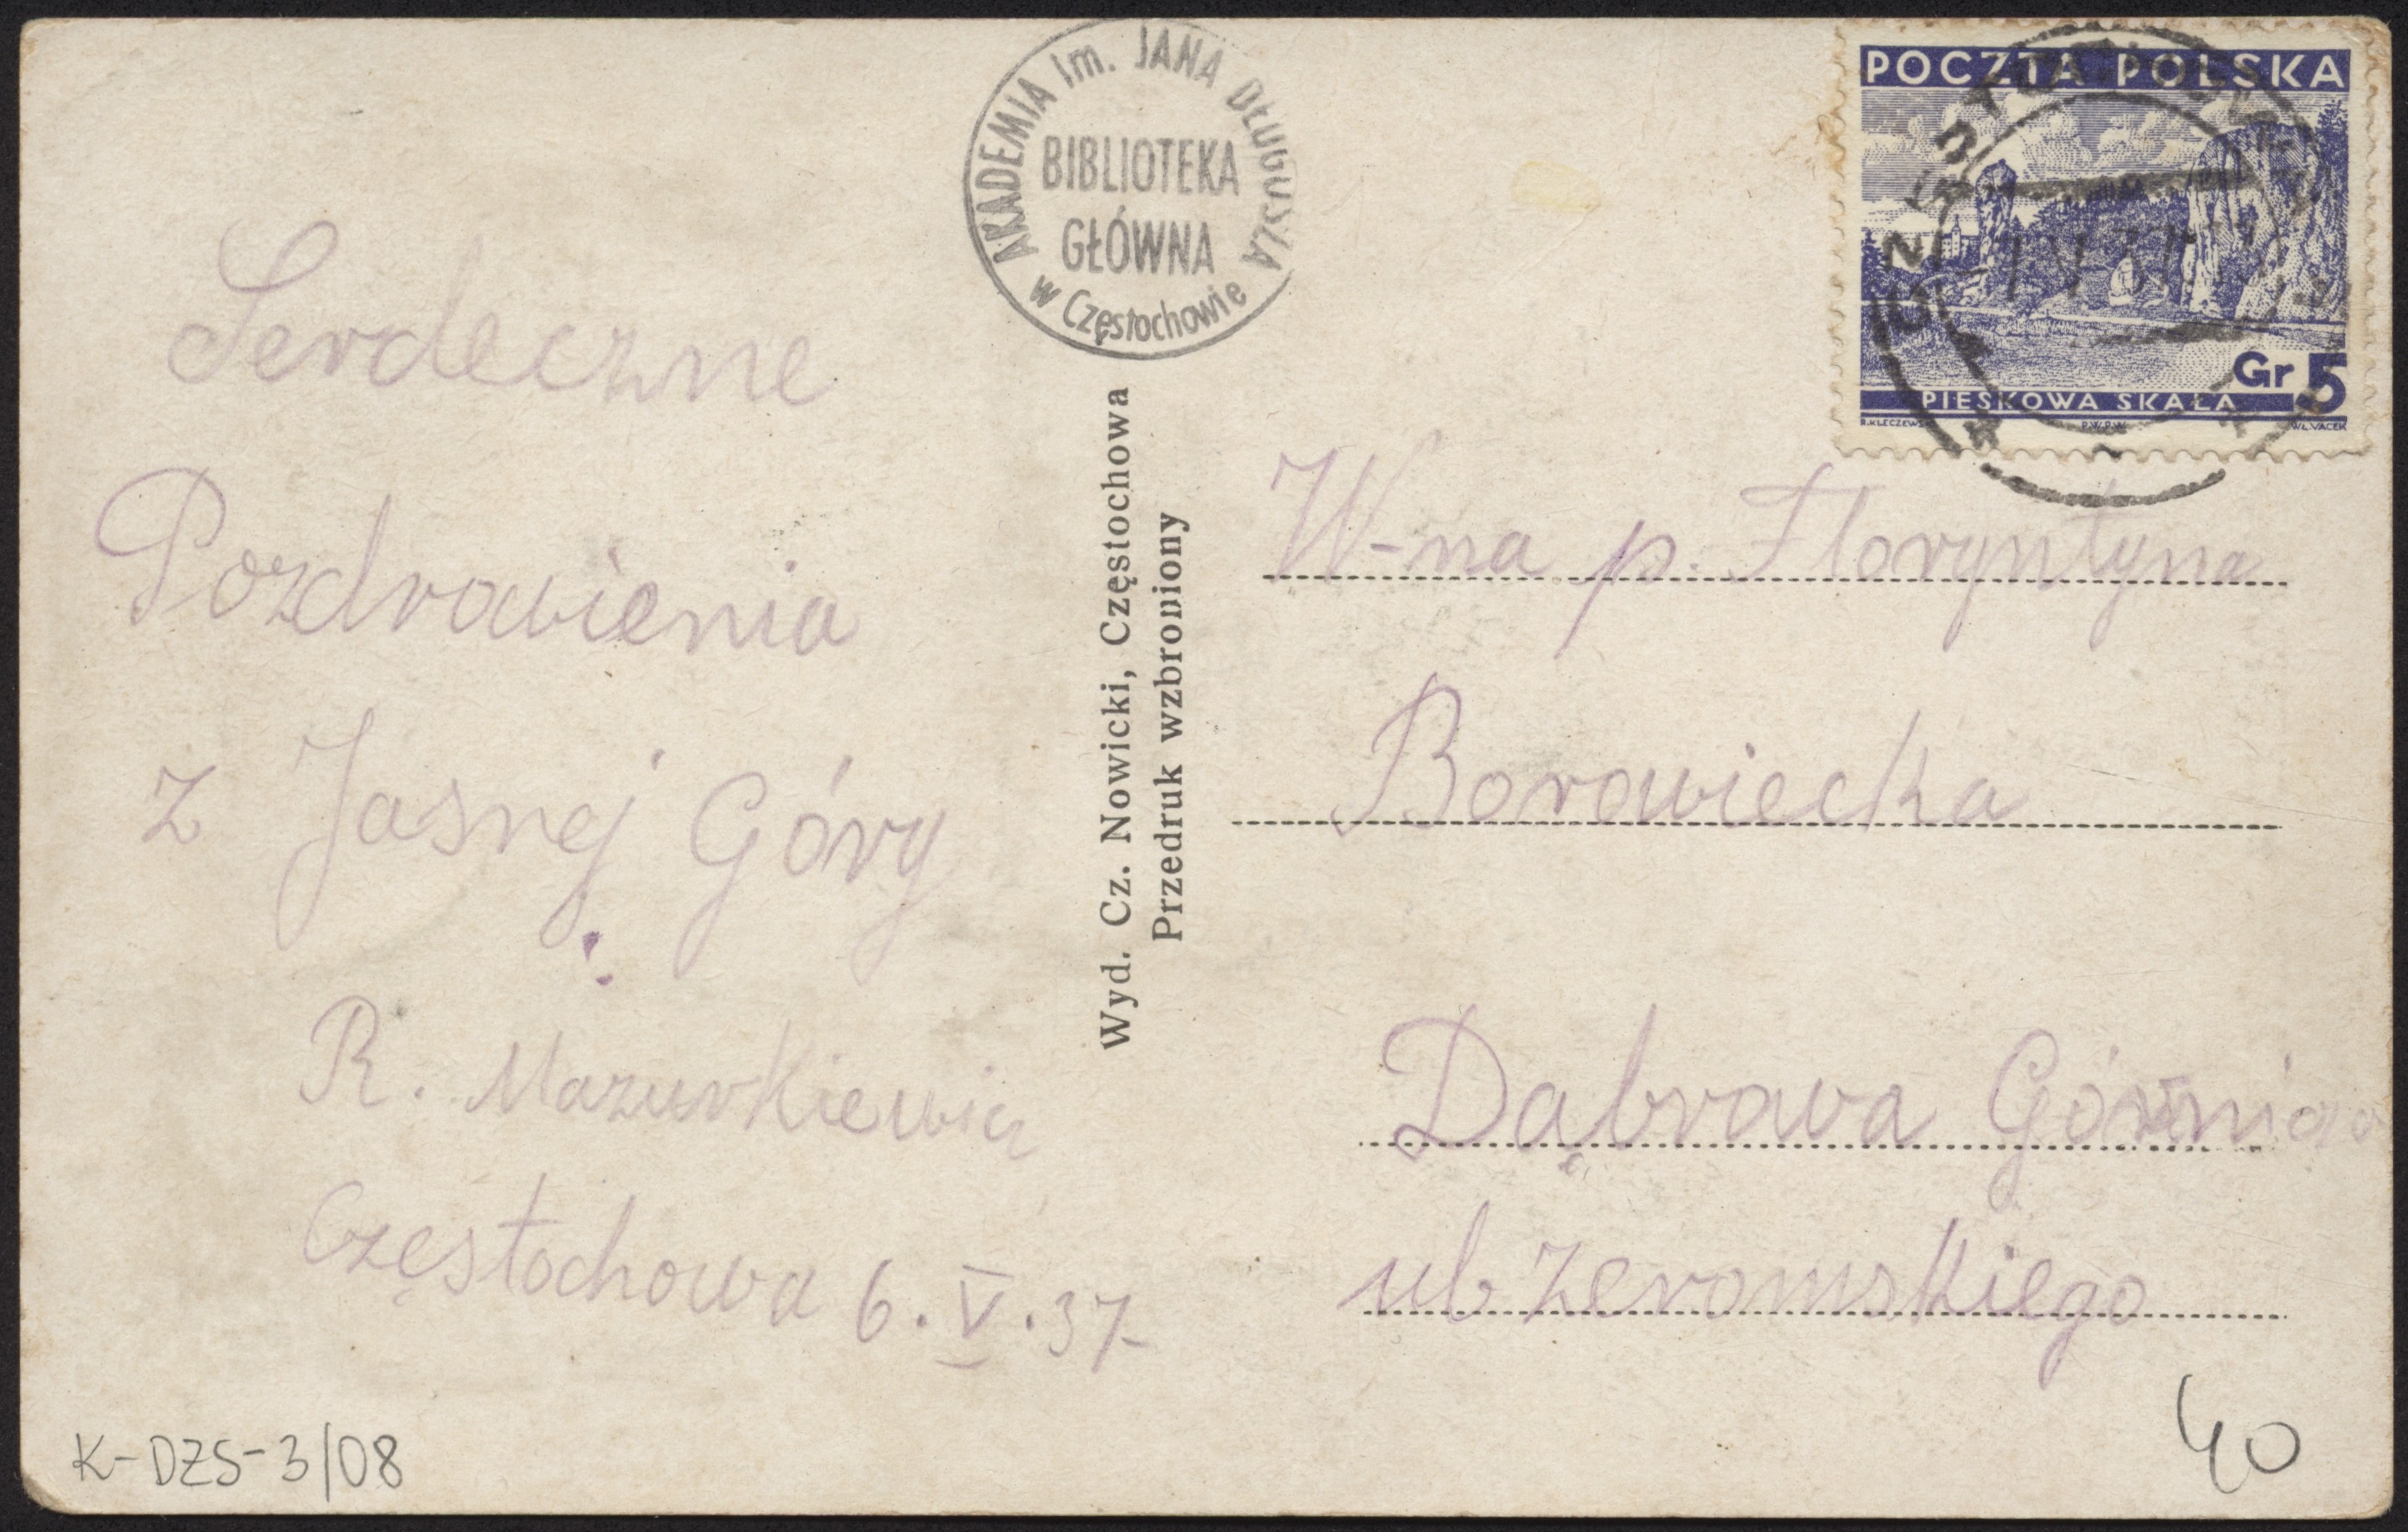 AKADEMIA Im. JANA DŁUGOSZA
BIBLIOTEKA
GŁÓWNA
w Częstochowie
POCZTA POLSKA
Gr 5
PIESKOWA SKAŁA
R.KLECZEWSKI P.W.P.W. WŁ.VACEK
Serdeczne
Pozdrowienia
z Jasnej Góry
R. Mazurkiewicz
Częstochowa 6.V.37
Wyd. Cz. Nowicki, Częstochowa
Przedruk wzbroniony
W-na p. Floryntyna
Borowiecka
Dąbrowa Górnicza
ul Żeromskiego
40
K-DZS-3/08